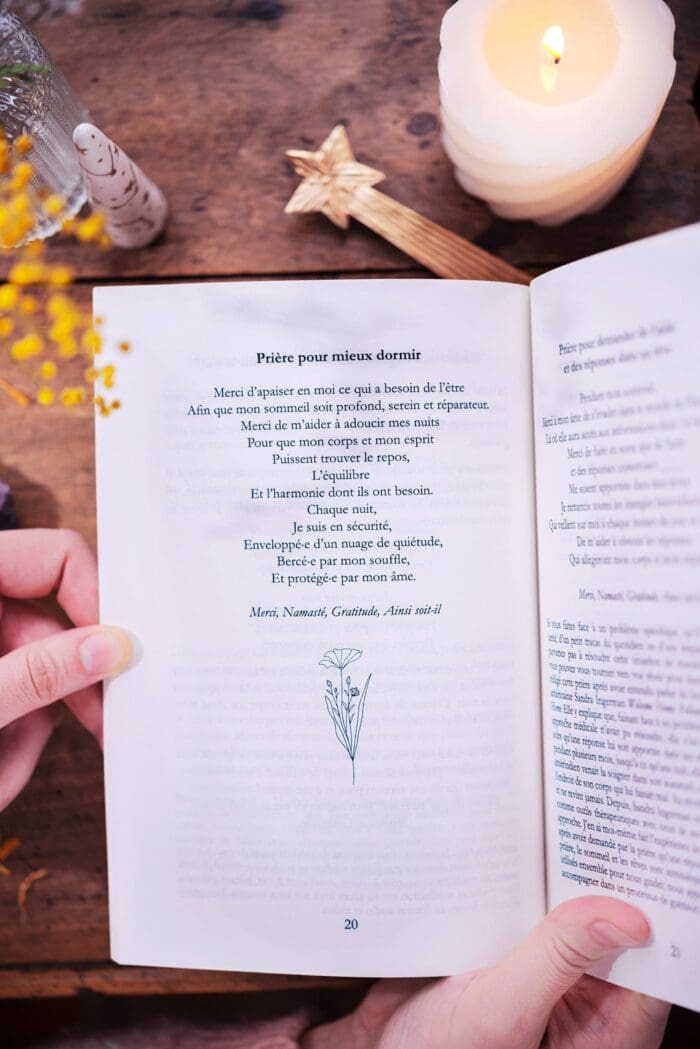 Prière pour mieux dormir
Merci d'apaiser en moi ce qui a besoin de l'être
Afin que mon sommeil soit profond, serein et réparateur.
Merci de m'aider à adoucir mes nuits
Pour que mon corps et mon esprit
Puissent trouver le repos,
L'équilibre
Et l'harmonie dont ils ont besoin.
Chaque nuit,
Je suis en sécurité,
Enveloppé·e d'un nuage de quiétude,
Bercé·e par mon souffle,
Et protégé·e par mon âme.
Merci, Namasté, Gratitude, Ainsi soit-il
20
Prière pour demander de l'aide
et des réponses dans un rêve
Pendant mon sommeil,
Merci de faire en sorte que de
et des réponses concernant
Me soient apportées dans mon
Je remercie toutes les énergies
Qui veillent sur moi à chaque
De m'aider à obtenir les réponses
Qui allégeront mon corps et mon
Merci, Namasté, Gratitude, Ainsi
Si vous faites face à un problème spécifique,
d'un petit tracas du quotidien ou d'un
parvenez pas à résoudre cette situation de
vous pouvez vous tourner vers vos
rédigé cette prière après avoir entendu parler
américaine Sandra Ingerman
Elle y explique que, faisant face à un
approche médicale n'avait pu résoudre, elle
qu'une réponse lui soit apportée dans
pendant plusieurs mois, jusqu'à ce qu'une
amérindien venait la soigner dans son
l'endroit de son corps qui lui faisait mal.
et ne revint jamais. Depuis, Sandra
comme outils thérapeutiques avec
approche. J'en ai moi-même fait l'expérience
après avoir demandé par la prière qu'une
prière, le sommeil et les rêves sont
utilisés ensemble pour nous guider, nous
accompagner dans un processus de guérison